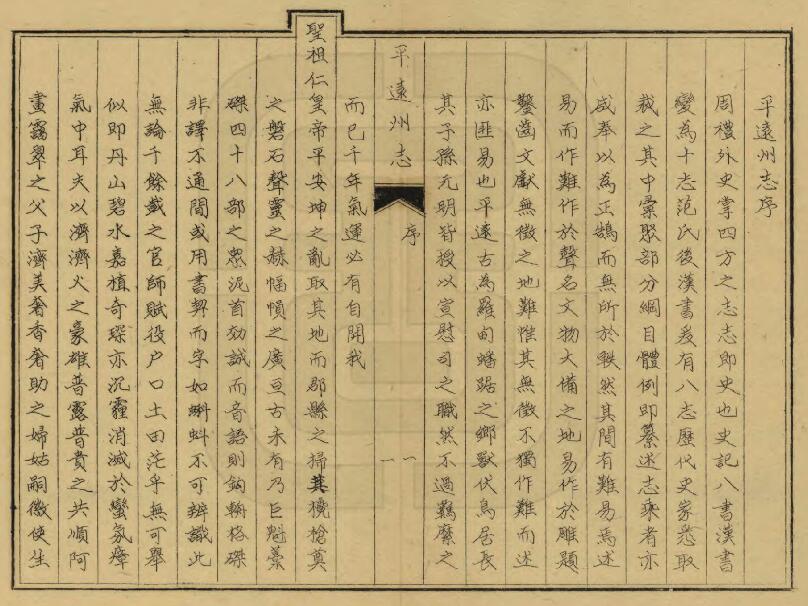 平遠州志序
周禮外史掌四方之志志即史也史記八書漢書
變為十志范氏後漢書爰有八志歷代史家悉取
裁之其中彙聚部分綱目體例即纂述志乘者亦
咸奉以為正鵠而無所於軼然其間有難易焉述
易而作難作於聲名文物大備之地易作於雕題
鑿齒文獻無徵之地難惟其無徵不獨作難而述
亦匪易也平遠古為羅甸蟠踞之鄉獸伏鳥居長
其子孫元明皆授以宣慰司之職然不過羈縻之
平遠州志
序
一一
而已千年氣運必有自開我
聖祖仁皇帝平安坤之亂取其地而郡縣之掃其欃槍奠
之磐石聲靈之赫幅幀之廣亘古未有乃巨魁藁
磔四十八部之衆泥首効誠而音語則鈎輈格磔
非譯不通間或用書契而字如蝌蚪不可辨識此
無論千餘載之官師賦役户口土田茫乎無可舉
似即丹山碧水嘉植奇琛亦沉霾消滅於蠻氛瘴
氣中耳夫以濟濟火之豪雄普露普貴之共順阿
畫靄翠之父子濟美奢香奢助之婦姑嗣徽使生